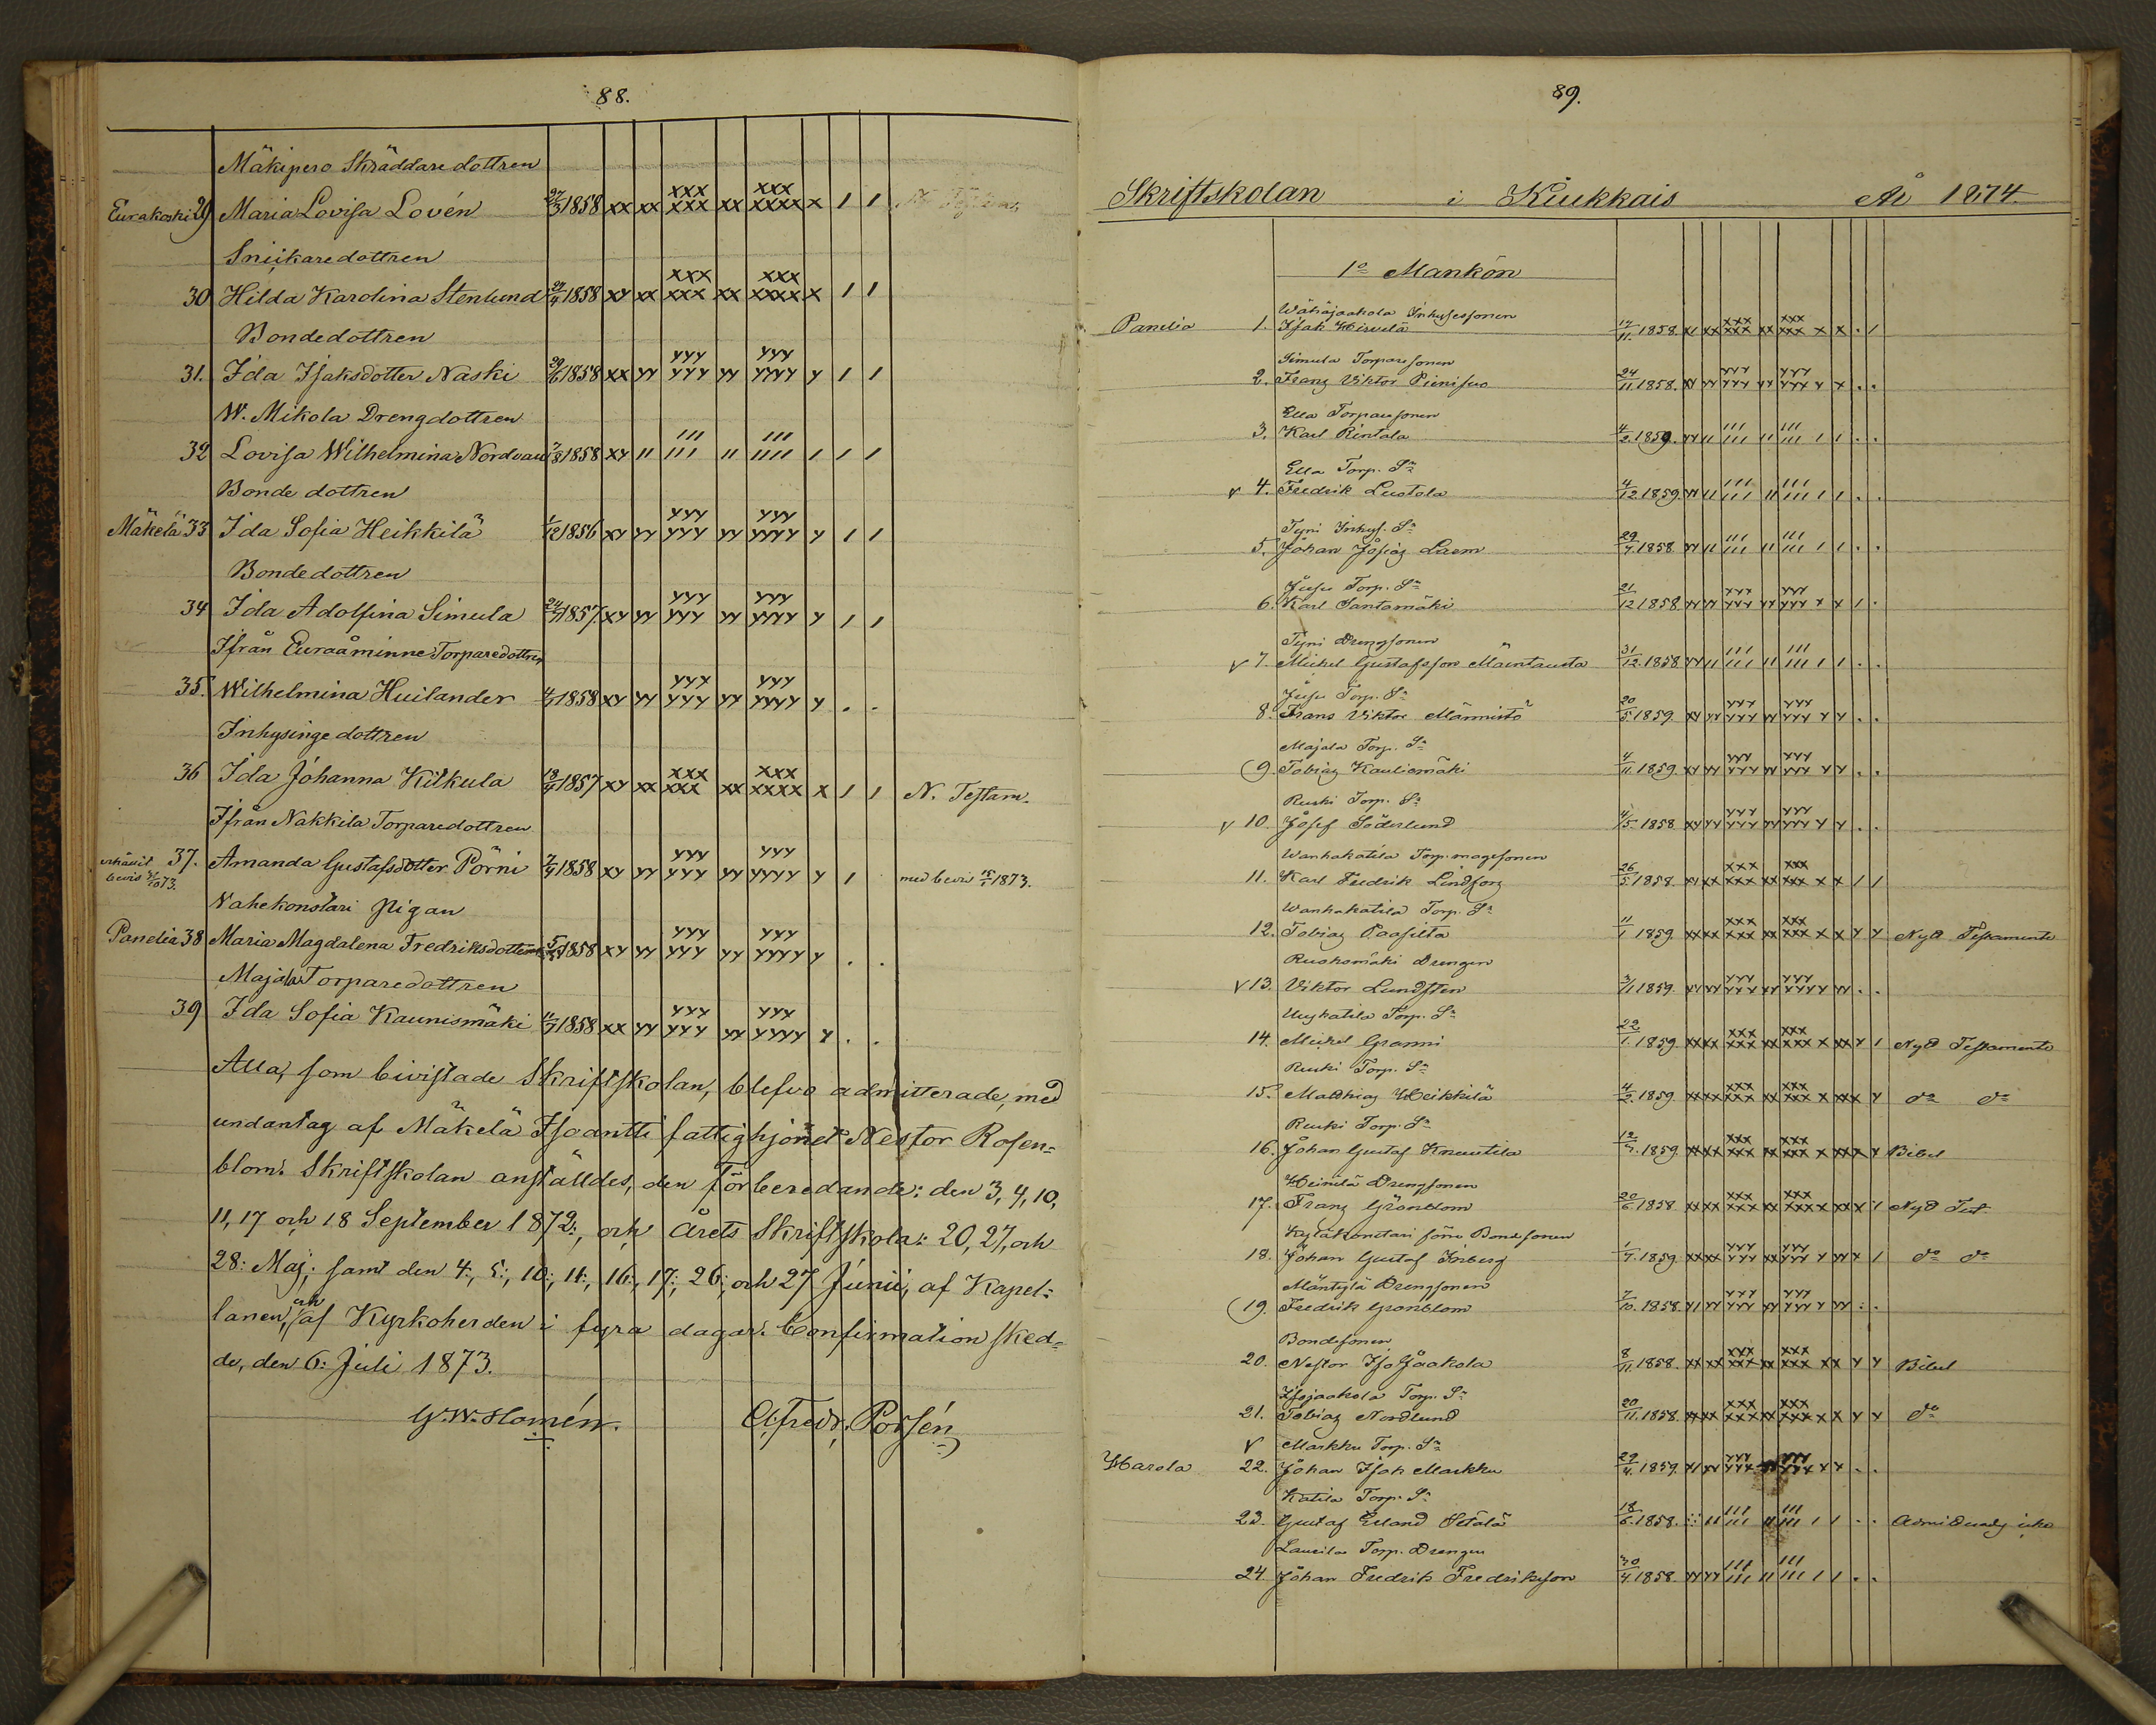 88.
Mäkipero Skräddaredottren
Eurakoski 29 Maria Lovisa Lovén 27/3 1858 xx xx xxx xxx xx xxx xxxx x / /
Snickaredottren
30 Hilda Karolina Stenlund 1858 xy xx xxx xxx xx xxx xxxx x / /
Bondedottren
31. Ida Isaksdotter Naski 29/6 1858 xx yy yyy yyy yy yyy yyyy y / /
W. Mikola Drengdottren
32 Lovisa Wilhelmina 1858 xy // /// /// // /// //// / / /
Bonde dottren
Mäkelä 33 Ida Sofia Heikkilä 1/12 1856 xy yy yyy yyy yy yyy yyyy y / /
Bondedottren
34 Ida Adolfina Simula 1857 xy yy yyy yyy yy yyy yyyy y / /
Ifrån Euraåminne Torparedottren
35. Wilhelmina Huilander 1858 xy yy yyy yyy yy yyy yyyy y . .
Inhysinge dottren
36 Ida Johanna Kilkula 1857 xy xx xxx xxx xx xxx xxxx x / / N. Testam.
Ifrån Nakkila Torparedottren
erhållit bevis 73. 37. Amanda Gustafsdotter Pörni 1858 xy yy yyy yyy yy yyy yyyy y / med bevis 1873.
Nahekonstari Pigan
Panelia 38 Maria Magdalena Fredriksdotter 1858 xy yy yyy yyy yy yyy yyyy y . .
Majala Torparedottren
39 Ida Sofia Kaunismäki 1858 xx yy yyy yyy yy yyy yyyy y . .
Alla, som bivistade Skriftskolan, blefvo admitterade, med
undantag af Mäkelä Isoantti fattighjonet Nestor Rosen-
blom. Skriftskolan anställdes, den förberedande: den 3, 4, 10,
11, 17 och 18 September 1872:, och årets Skriftskola: 20, 27, och
28: Maj; samt den 4:, 5:, 10:, 11:, 16:, 17:, 26:, och 27 Junii, af Kapel-
lanen, och af Kyrkoherden i fyra dagar. Confirmation sked-
de, den 6: Juli 1873.
G. W. Homén. Alfredr. Porsén
89.
Skriftskolan i Kiukkais År 1874.
1o Mankön
Wähäjaakola Inhysessonen
Panelia 1. Isak Hirvelä 1858. xx xxx xxx xx xxx xxx x x . /
Simula Torparesonen
2. Franz Viktor Pienisuo 24/11 1858. yy yy yyy yyy yy yyy yyy y x . .
Ella Torparesonen
3. Karl Rintala 4/2 1859. yy // /// /// // /// /// / / . .
Ella Torp. Sn
v 4. Fredrik Luotola 4/12 1859. yy // /// /// // /// /// / / . .
Tyni Inhys. Sn
5. Johan Josiaz Laem 1858 yy // /// /// // /// /// / / . .
Juju Torp. Sn
6. Karl Santamäki 21/12 1858 yy yy yyy yyy yy yyy yyy y x / .
Tyni Drengsonen
v 7. Mickel Gustafsson Mäentausta 31/12. 1858 yy // /// /// // /// /// / / . .
Juju Torp. Sn
8. Frans Viktor Männistö 20/5. 1859 xy yy yyy yyy yy yyy yyy y y . .
Majala Torp. Sn
(9. Tobiaz Kauliomäki 4/11. 1859. xy yy yyy yyy yy yyy yyy y y . .
Ruski Torp. Sn
v 10. Josef Söderlund 4/5. 1858 xy yy yyy yyy yy yyy yyy y y . .
Wanhakatila Torp. magesonen
11. Karl Fredrik Lindforz 26/5. 1858. xy xx xxx xxx xx xxx xxx x x / /
Wanhakatila Torp. Sn
12. Tobiaz Paasilta 11/1 1859. xx xx xxx xxx xx xxx xxx x x y y Nya Testamente
Ruohomäki Drengen
v 13. Viktor Lundsten 3/1 1859. yy yy yyy yyy yy yyy yyy y yy . .
Uusikatila Torp. Sn
14. Mickel Granni 22/1. 1859. xx xx xxx xxx xx xxx xxx x xx y / Nya Testamente
Ruski Torp. Sn
15. Matthiaz Heikkilä 4/2. 1859 xx xx xxx xxx xx xxx xxx x xx x y do do
Ruski Torp. Sn
16. Johan Gustaf Knuutila 1859 xx xx xxx xxx xx xxx xxx x xx x y Bibel
Heinilä Drengsonen
17. Franz Grönblom 20/6. 1858 xx xx xxx xxx xx xxx xxx x xx x y Nya Test
Kyläkonstari Bondsonen
18. Johan Gustaf Inberg 1859 xx xx yyy yyy xx yyy yyy y yy y / do do
Mäntylä Drengsonen
(19. Fredrik Grönblom 7/10. 1858. yy yy yyy yyy yy yyy yyy y yy . .
Bondesonen
20. Nestor Iso Jaakola 8/11. 1858. xx xx xxx xxx xx xxx xxx x x y y Bibel
Isojaakola Torp. Sn
21. Tobiaz Nordlund 20/11. 1858. xx xx xxx xxx xx xxx xxx x x y y do
v Markku Torp. Sn
Harola 22. Johan Isak Markku 29/4. 1859. xy yy yyy yyy yyy yyy y y . .
Katila Torp. Sn
23. Gustaf Erland Setälä 18/6. 1858. // /// /// // /// /// / / . . Admitterades icke
Laurila Torp. Drengen
24. Johan Fredrik Fredriksson 30/4. 1858. yy yy /// /// // /// /// / / . .